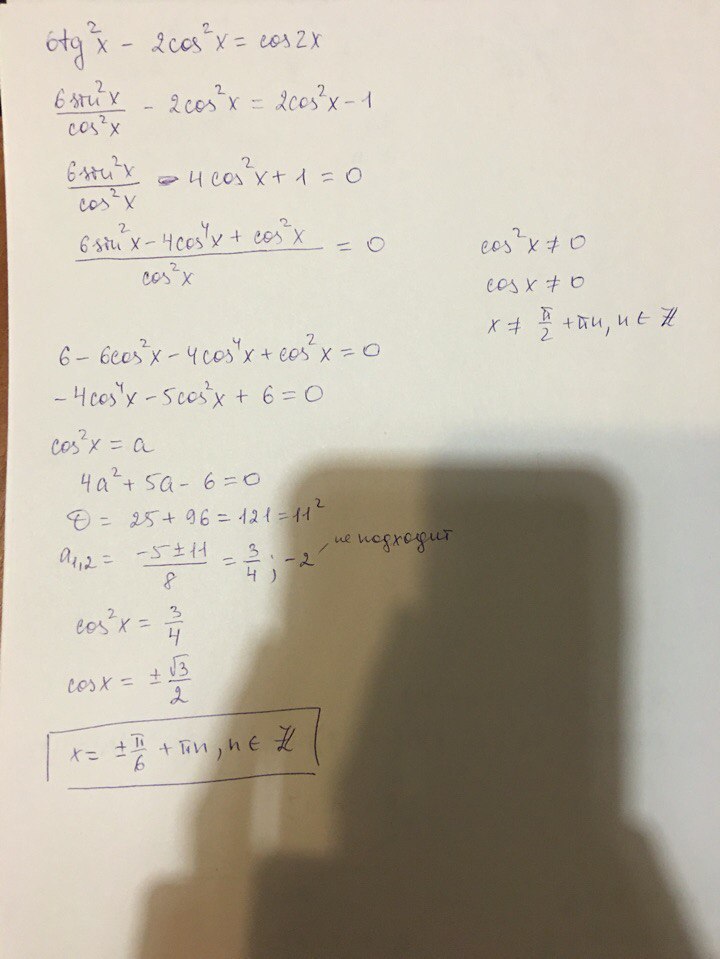 6tg²x - 2cos²x = cos2x
6sin²x/cos²x - 2cos²x = 2cos²x - 1
6sin²x/cos²x - 4cos²x + 1 = 0
(6sin²x - 4cos⁴x + cos²x)/cos²x = 0
cos²x ≠ 0
cosx ≠ 0
x ≠ π/2 + πn, n ∈ ℤ
6 - 6cos²x - 4cos⁴x + cos²x = 0
-4cos⁴x - 5cos²x + 6 = 0
cos²x = a
4a² + 5a - 6 = 0
D = 25 + 96 = 121 = 11²
a₁,₂ = (-5 ± 11)/8 = 3/4; -2 не подходит
cos²x = 3/4
cosx = ±√3/2
x = ±π/6 + πn, n ∈ ℤ